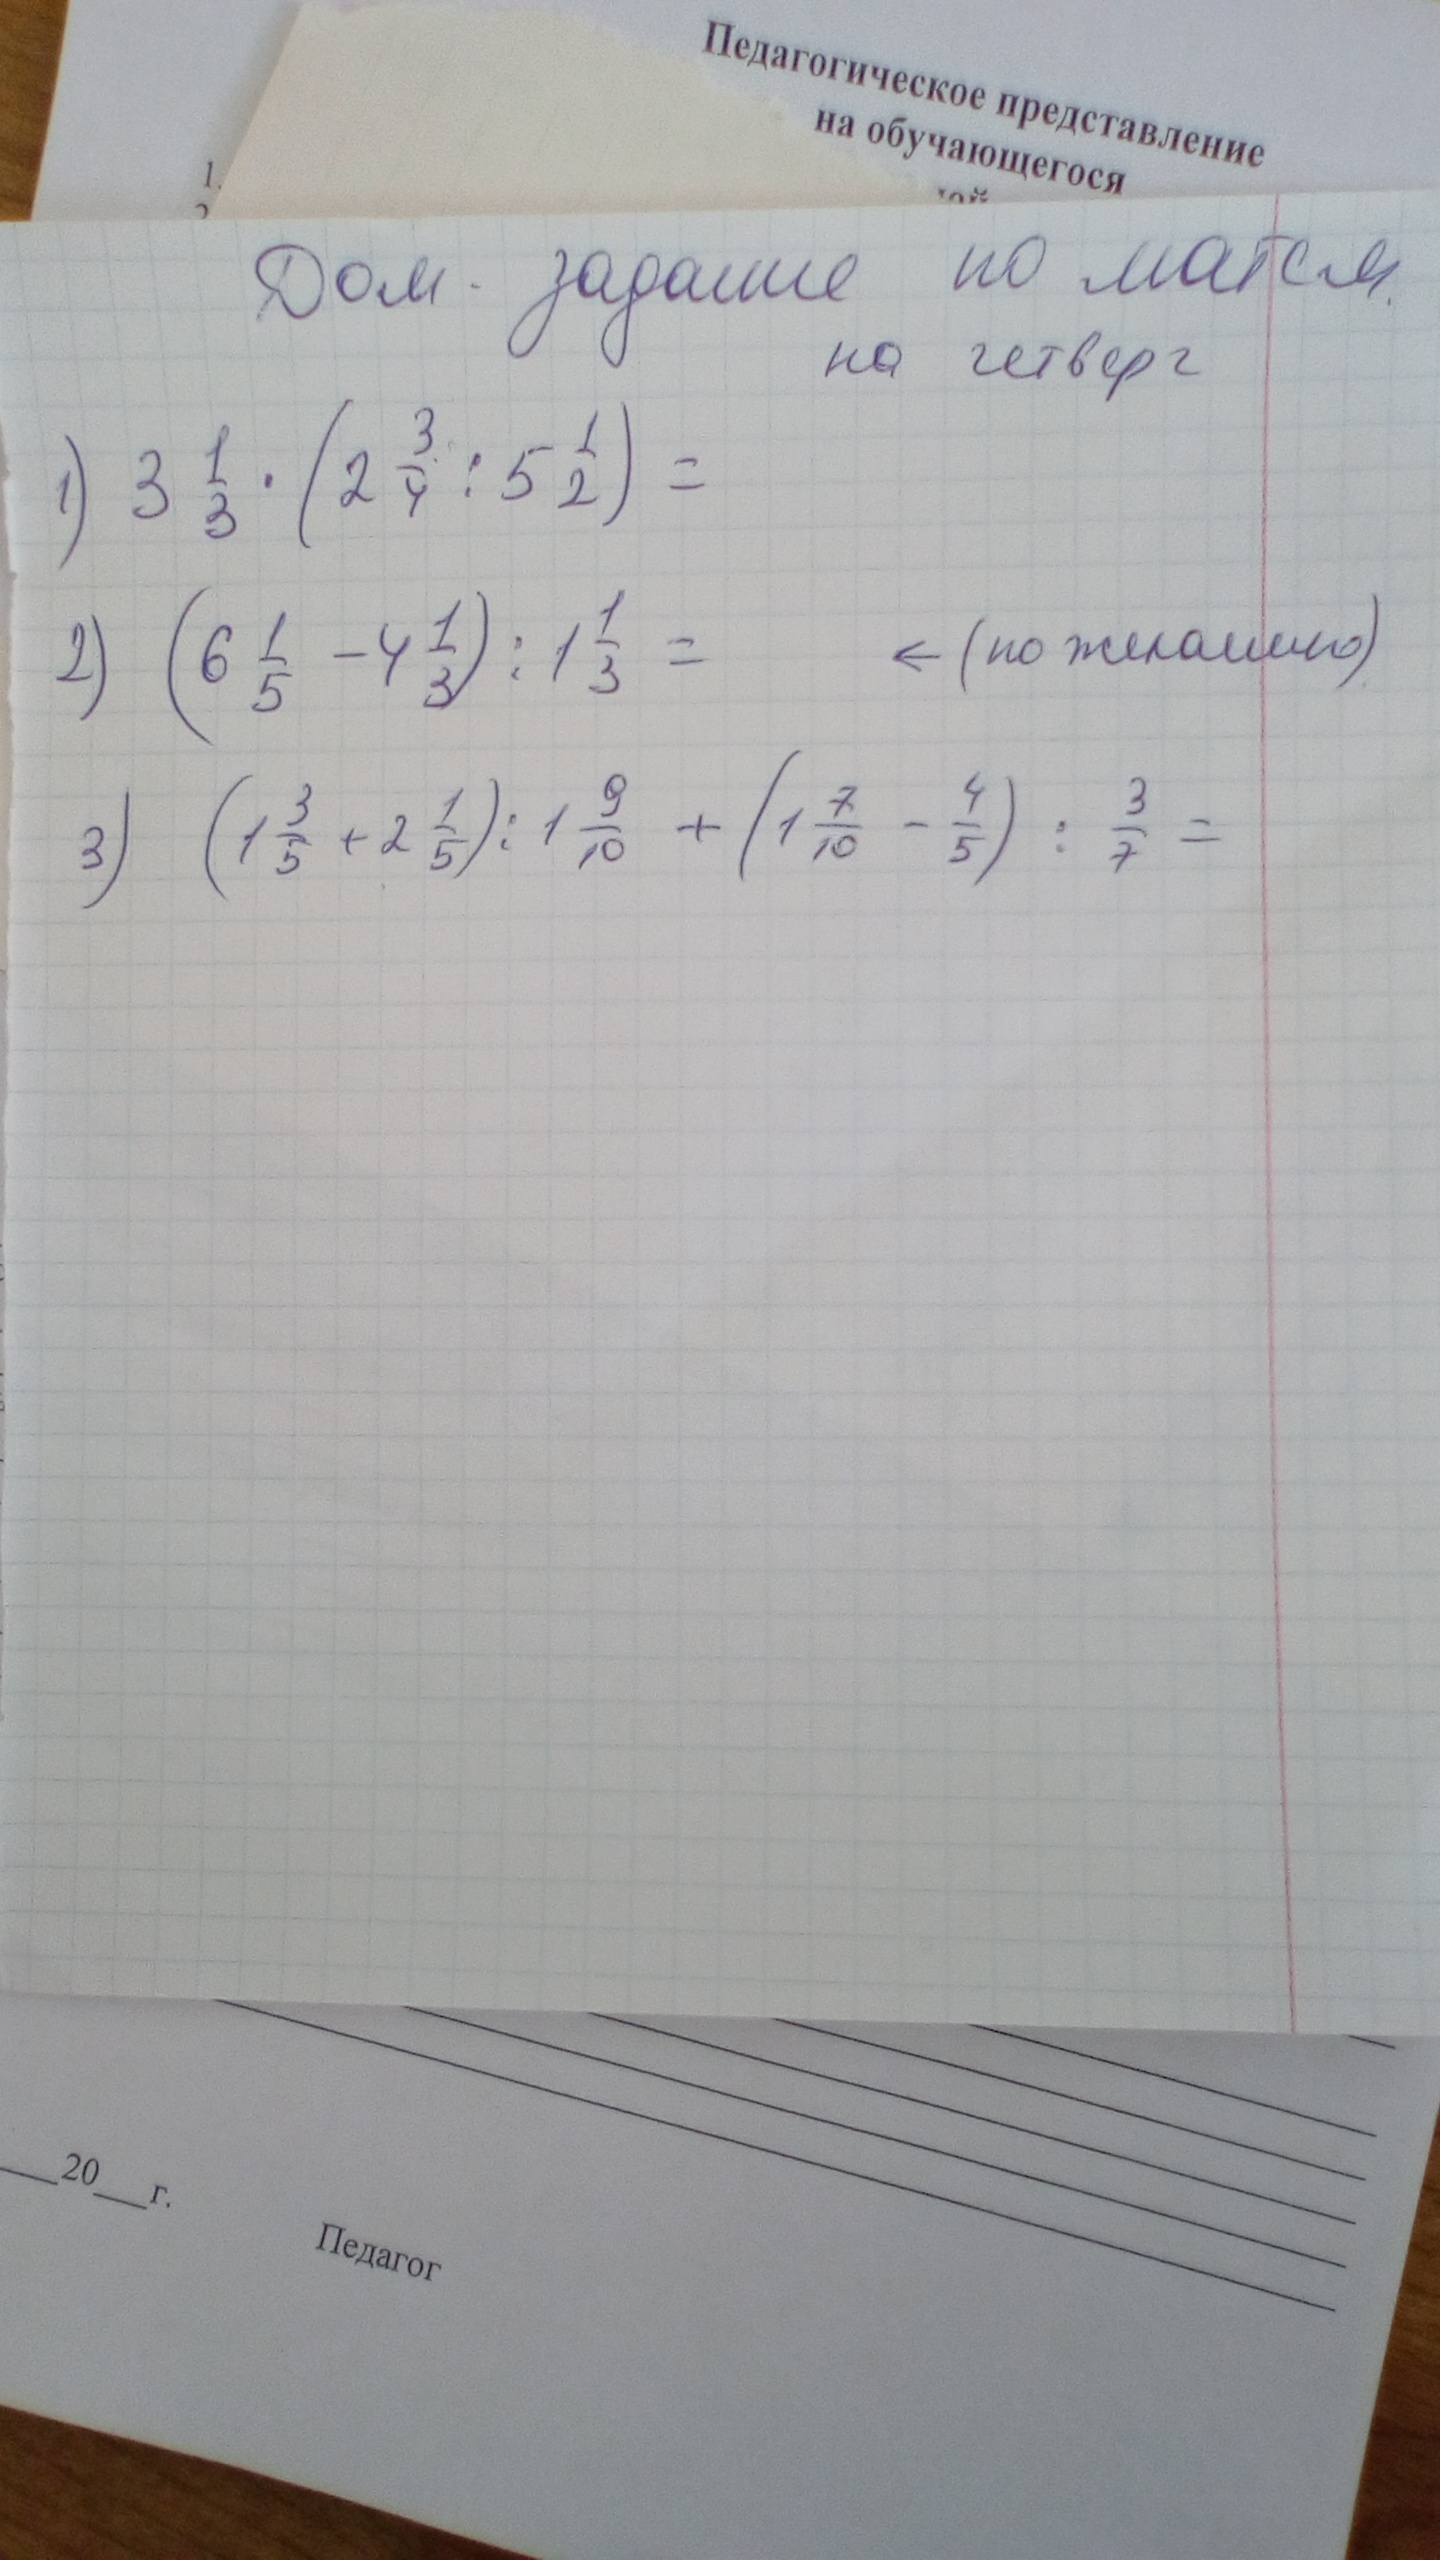 Педагогическое представление
на обучающегося
1.
2
Дом. задание по матем.
на четверг
1) 3 1/3 · (2 3/4 : 5 1/2) =
2) (6 1/5 - 4 1/3) : 1 1/3 = ← (по желанию)
3) (1 3/5 + 2 1/5) : 1 9/10 + (1 7/10 - 4/5) : 3/7 =
___20___г.
Педагог